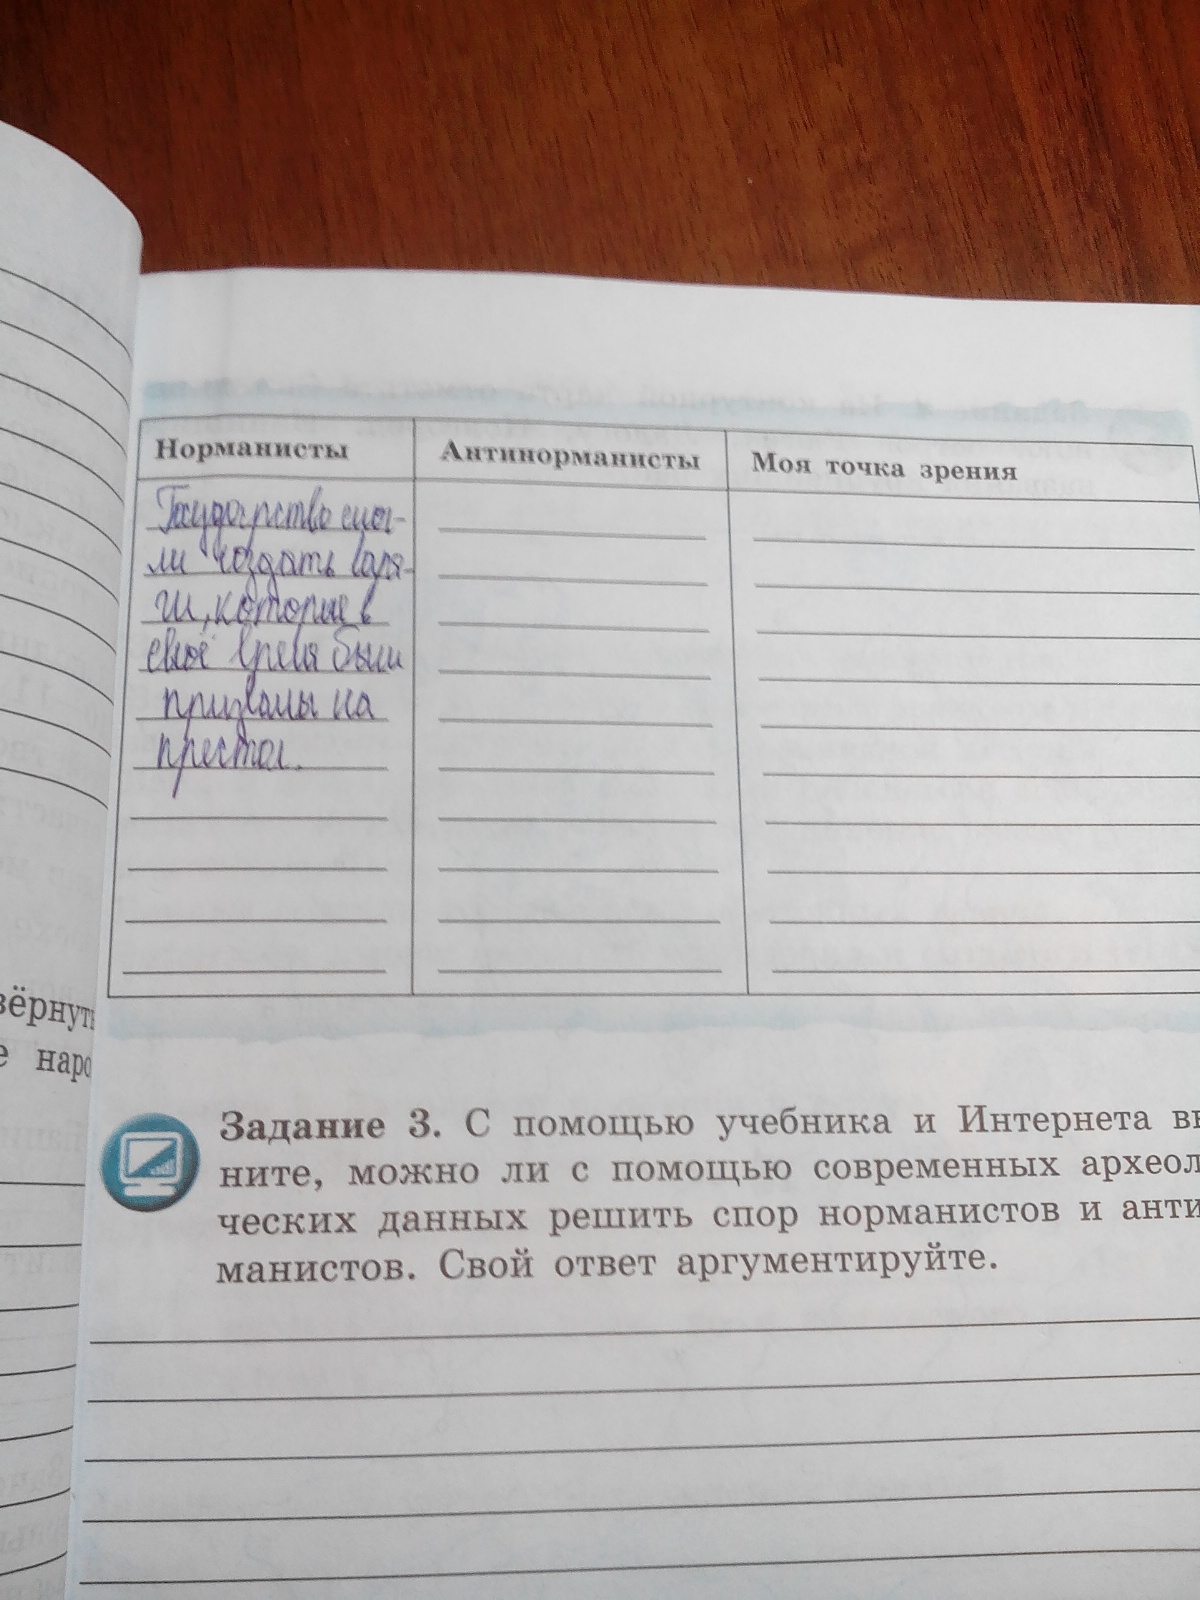 Норманисты
Антинорманисты
Моя точка зрения
Государство смог-
ли создать варя-
ги, которые в
своё время были
призваны на
престол.
вёрнуть
е наро
Задание 3. С помощью учебника и Интернета вы
ните, можно ли с помощью современных археол
ческих данных решить спор норманистов и анти
манистов. Свой ответ аргументируйте.